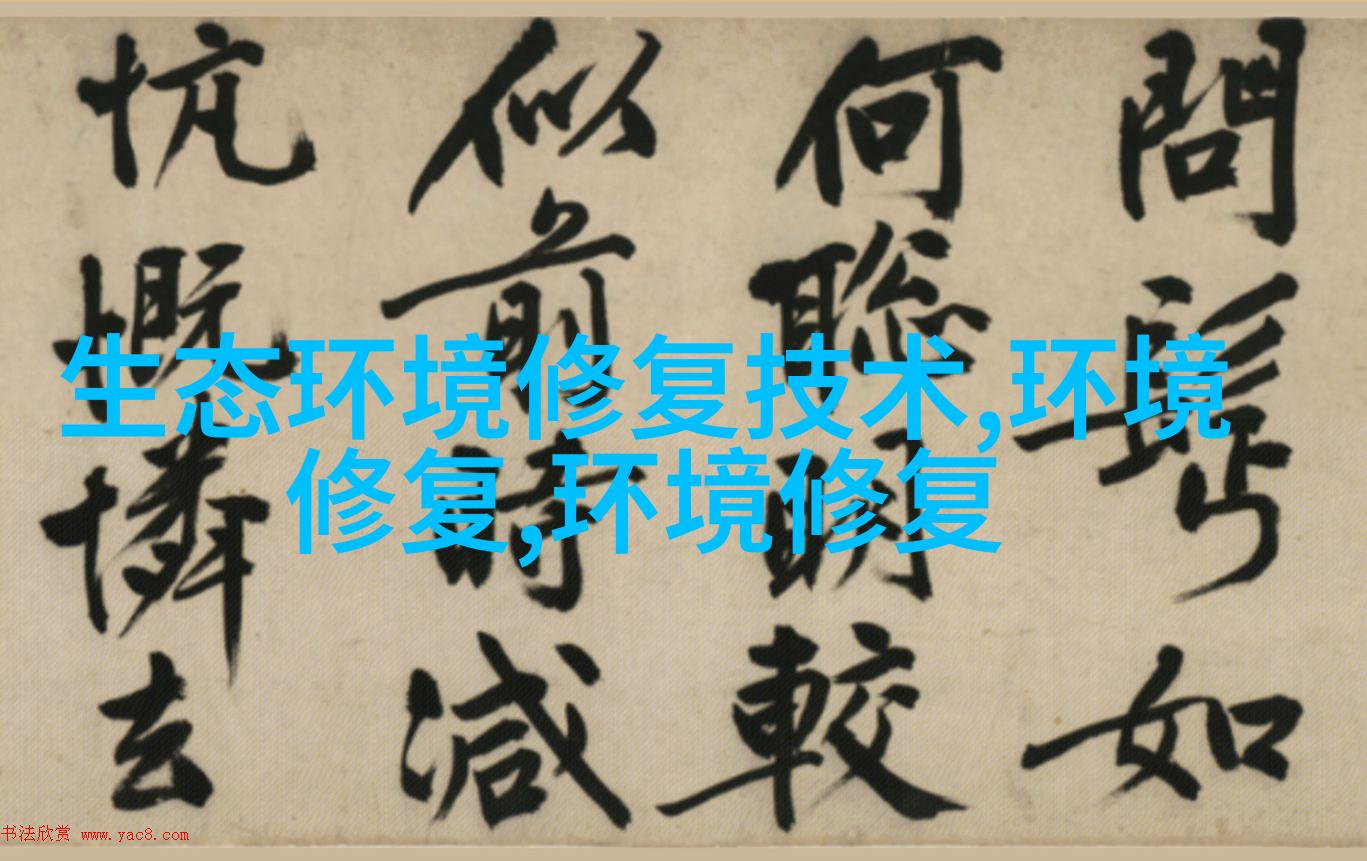 生态环境修复技术,环境
修复,环境修复
問如
何聰明較
似前時減
忼慨憐去
书法欣赏 www.yac8.com